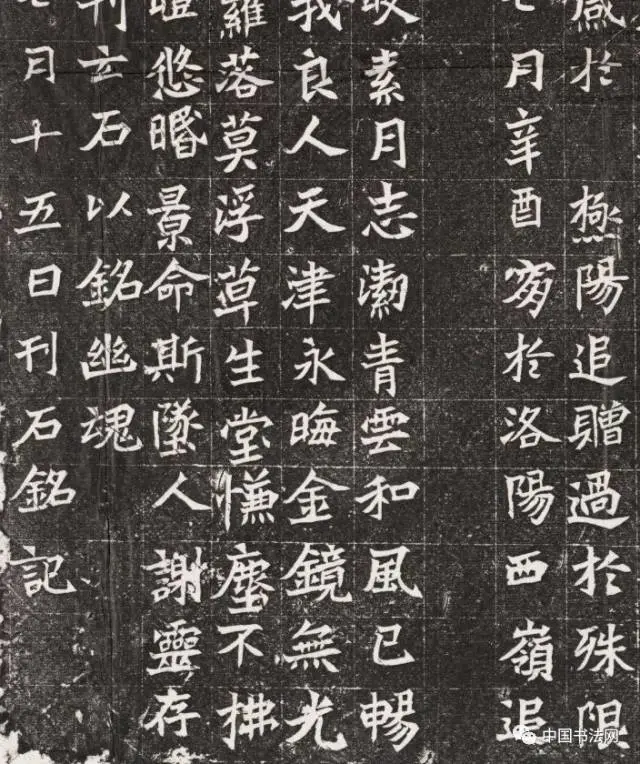 於 極陽追贈過於殊限
七月辛酉於洛陽西嶺追
素月志潔青雲和風已暢
我良人天津永晦金鏡無光
羅落莫浮草生堂慊塵不拂
悠景命斯墜人謝靈存
刊立石以銘幽魂
七月十五日刊石銘記
中国书法网